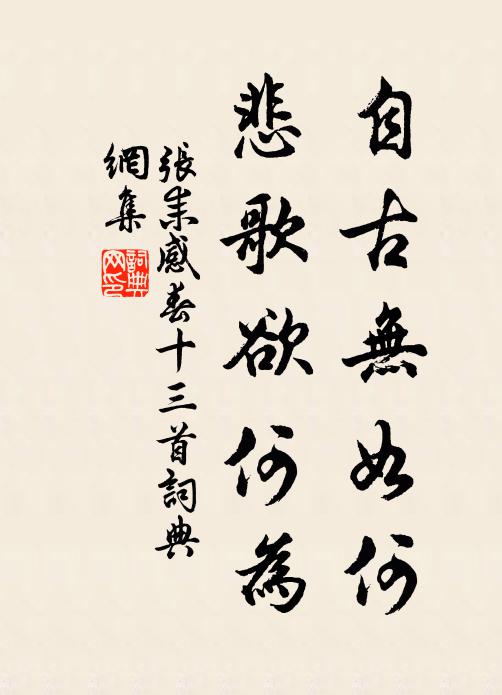 自古無如何
悲歌欲何為
張耒感春十三首詞典
網集
詞典
网印